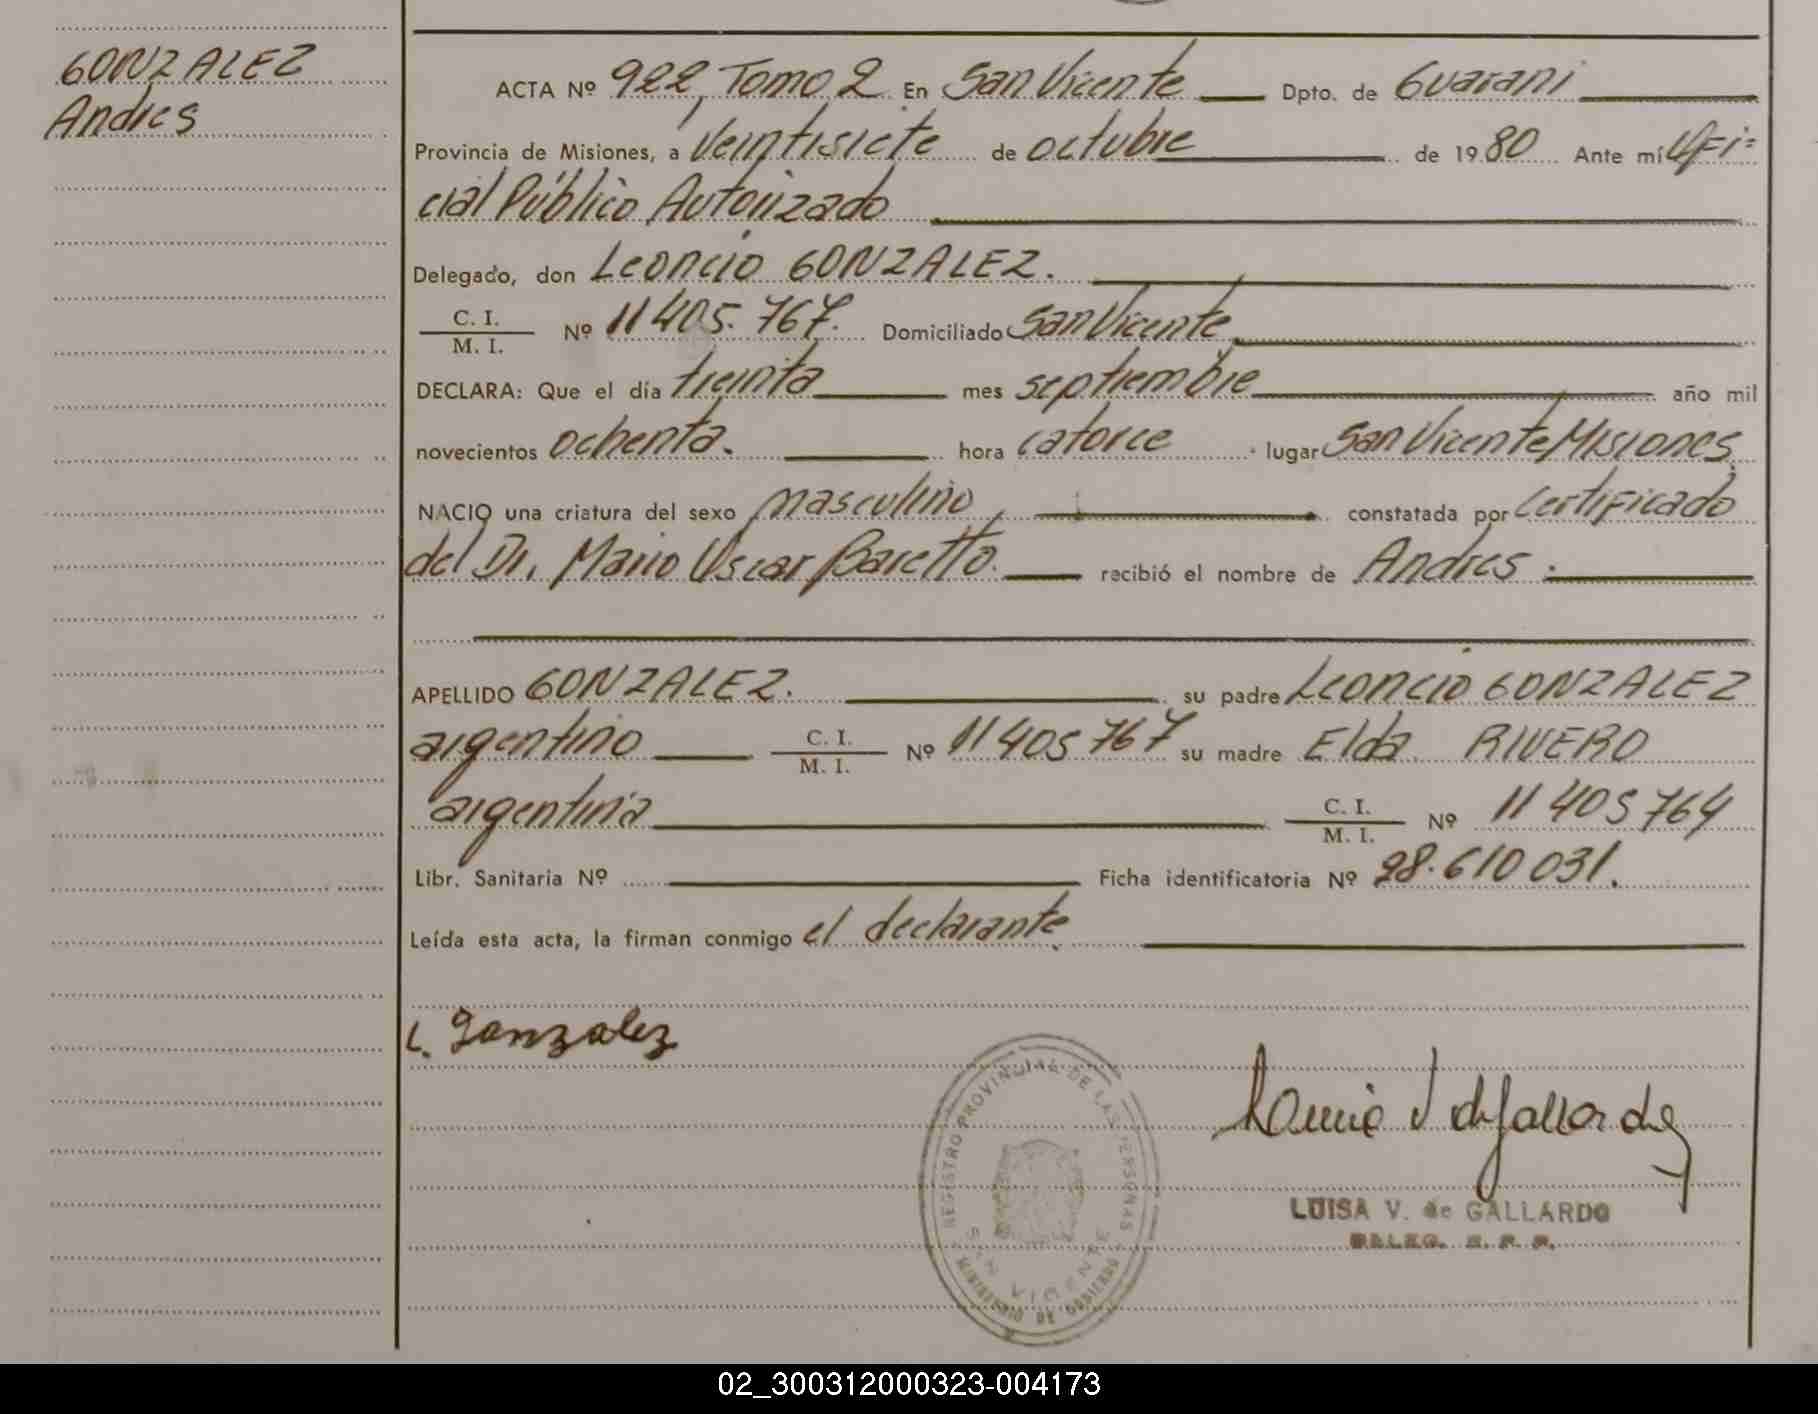 GONZALEZ
Andres
ACTA Nº 922, Tomo 2 En San Vicente Dpto. de Guarani
Provincia de Misiones, a Veintisiete de octubre de 1980 Ante mí Ofi=
cial Público Autorizado
Delegado, don Leoncio GONZALEZ.
C. I.
M. I. Nº 11405.767. Domiciliado San Vicente
DECLARA: Que el día treinta mes septiembre año mil
novecientos ochenta. hora catorce lugar San Vicente Misiones
NACIO una criatura del sexo masculino, constatada por certificado
del Dr. Mario Oscar Baretto. recibió el nombre de Andres.
APELLIDO GONZALEZ. su padre Leoncio GONZALEZ
argentino C. I.
M. I. Nº 11405767 su madre Elda RIVERO
argentina C. I.
M. I. Nº 11 405 764
Libr. Sanitaria Nº Ficha identificatoria Nº 28.610 031.
Leída esta acta, la firman conmigo el declarante
L. Gonzalez
REGISTRO PROVINCIAL DE LAS PERSONAS
SAN VICENTE
MINISTERIO DE GOBIERNO
V de Gallardo
LUISA V. de GALLARDO
DELEG. R. P. P.
02_300312000323-004173